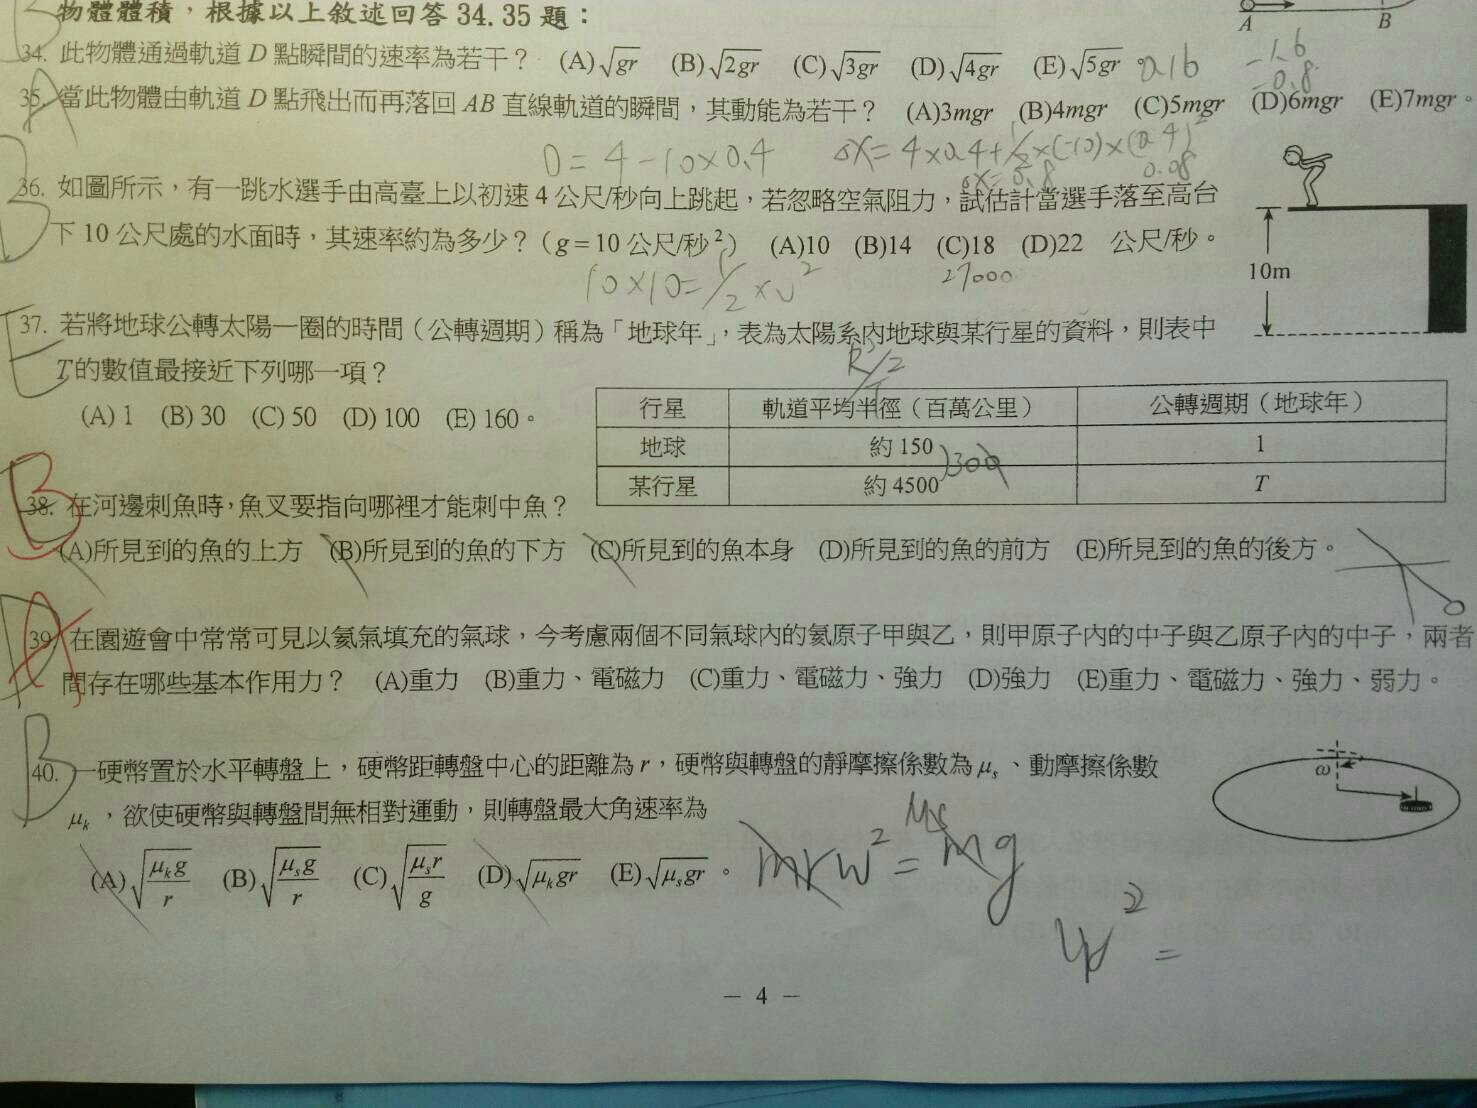 物體體積，根據以上敘述回答 34. 35 題：
A B
34. 此物體通過軌道 D 點瞬間的速率為若干？ (A)√gr (B)√2gr (C)√3gr (D)√4gr (E)√5gr 。
0.16
-1.6
-0.8
A
35. 當此物體由軌道 D 點飛出而再落回 AB 直線軌道的瞬間，其動能為若干？ (A)3mgr (B)4mgr (C)5mgr (D)6mgr (E)7mgr。
0 = 4 - 10×0.4
ΔX = 4×0.4+1/2×(-10)×(0.4)²
ΔX = 0.8
0.08
36. 如圖所示，有一跳水選手由高臺上以初速 4 公尺/秒向上跳起，若忽略空氣阻力，試估計當選手落至高台
下 10 公尺處的水面時，其速率約為多少？（g＝10 公尺/秒²） (A)10 (B)14 (C)18 (D)22 公尺/秒。
10m
10×10=1/2×v²
27000
E
37. 若將地球公轉太陽一圈的時間（公轉週期）稱為「地球年」，表為太陽系內地球與某行星的資料，則表中
T的數值最接近下列哪一項？
(A) 1 (B) 30 (C) 50 (D) 100 (E) 160。
行星 軌道平均半徑（百萬公里） 公轉週期（地球年）
地球 約 150 1
某行星 約 4500 T
B
38. 在河邊刺魚時，魚叉要指向哪裡才能刺中魚？
(A)所見到的魚的上方 (B)所見到的魚的下方 (C)所見到的魚本身 (D)所見到的魚的前方 (E)所見到的魚的後方。
D A
39. 在園遊會中常常可見以氦氣填充的氣球，今考慮兩個不同氣球內的氦原子甲與乙，則甲原子內的中子與乙原子內的中子，兩者
間存在哪些基本作用力？ (A)重力 (B)重力、電磁力 (C)重力、電磁力、強力 (D)強力 (E)重力、電磁力、強力、弱力。
B
40. 一硬幣置於水平轉盤上，硬幣距轉盤中心的距離為 r，硬幣與轉盤的靜摩擦係數為 μs、動摩擦係數
μk，欲使硬幣與轉盤間無相對運動，則轉盤最大角速率為
ω
(A)√(μkg/r) (B)√(μsg/r) (C)√(μsr/g) (D)√μkgr (E)√μsgr 。
mrw² = μs mg
w² =
－ 4 －